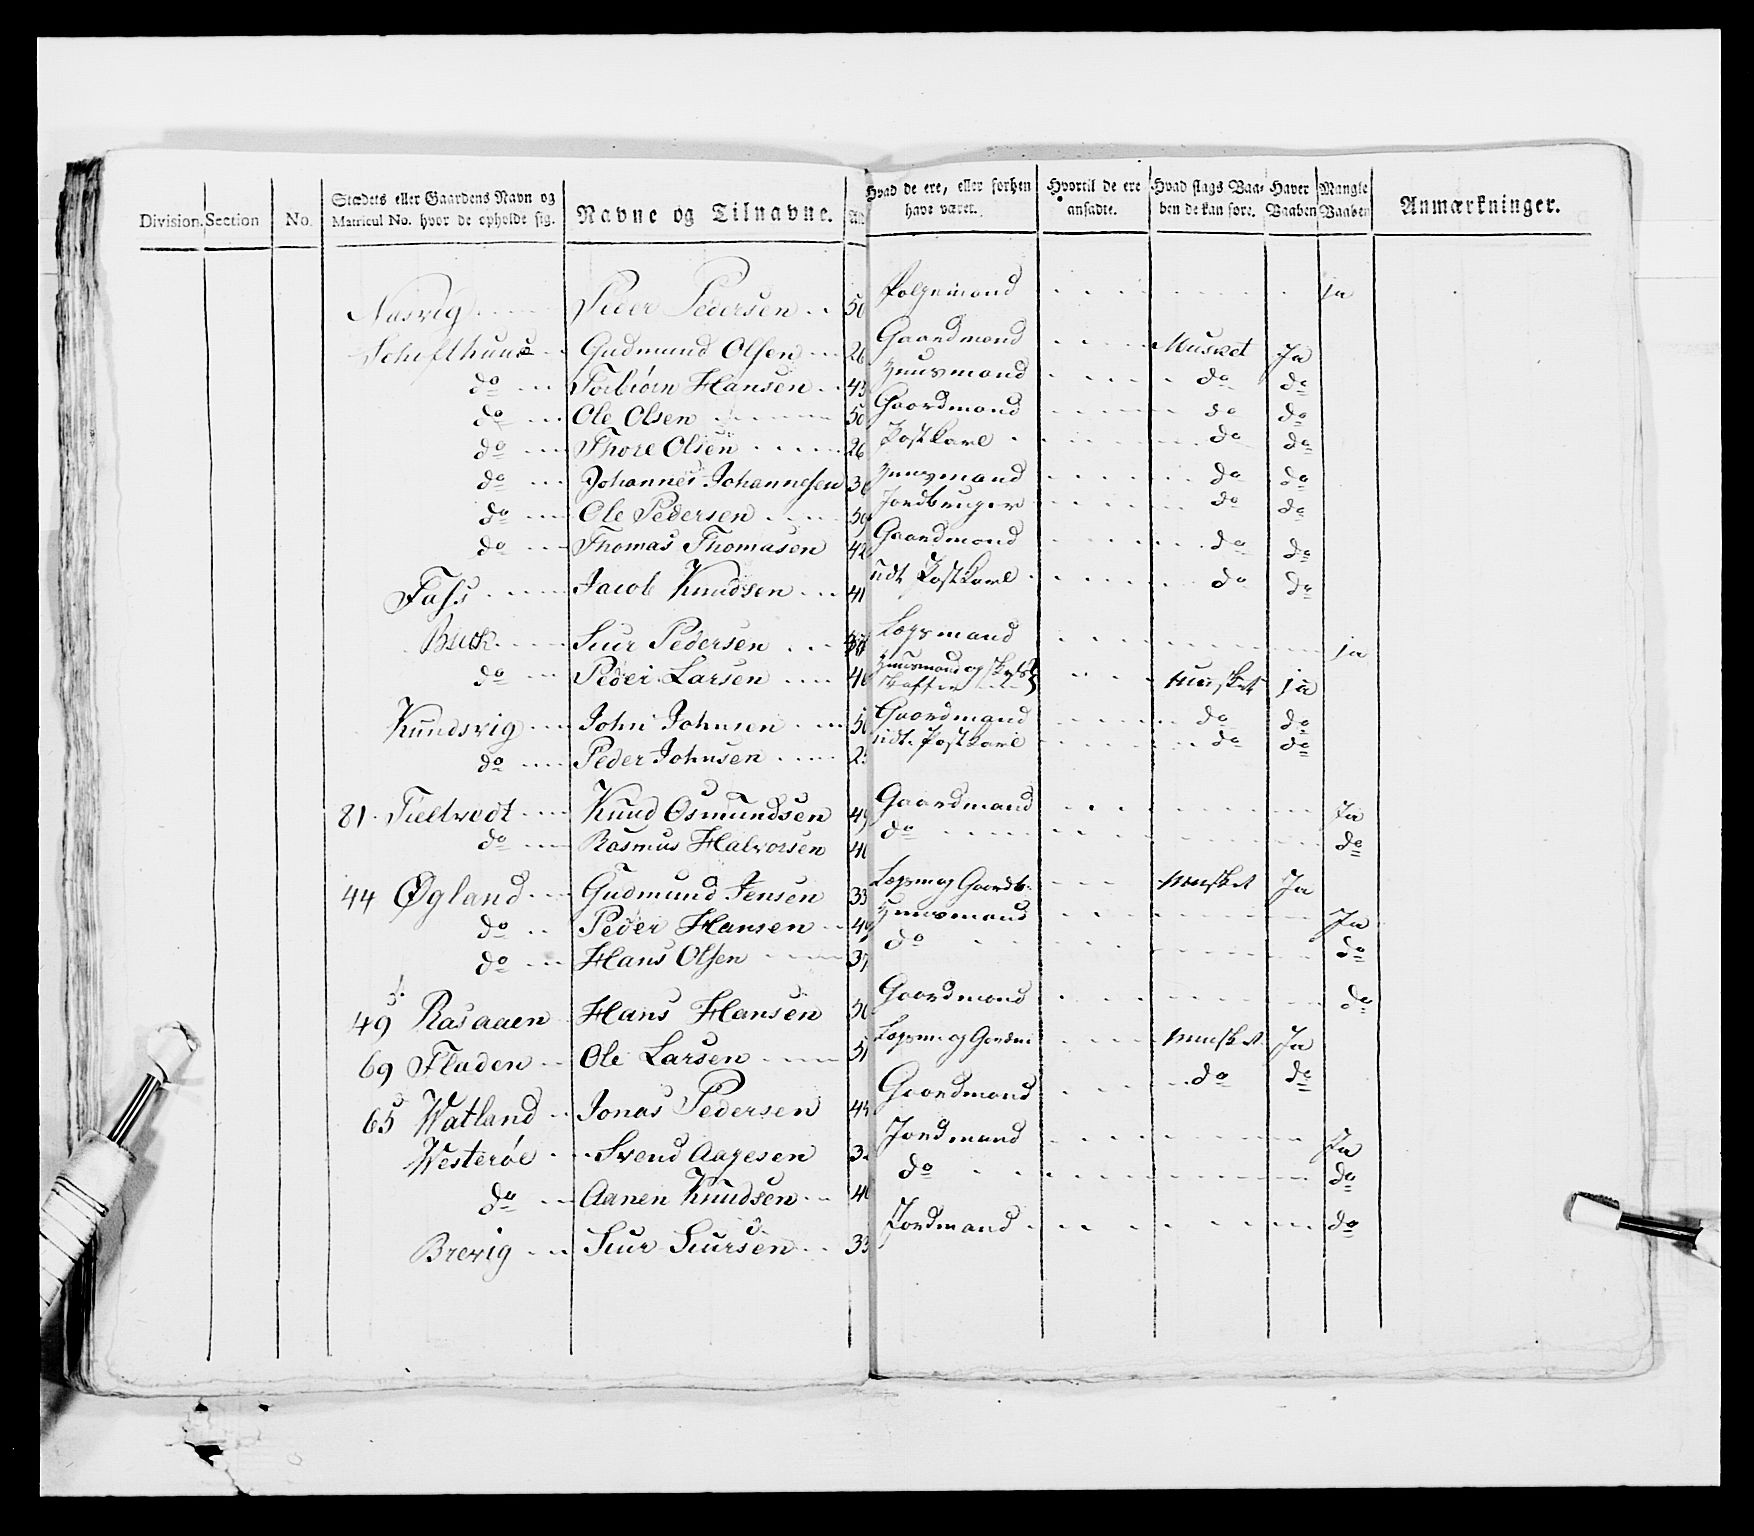 Division. Section No. Stædets eller Gaardens Navn og Matricul No. hvor de opholde sig. Navne og Tilnavne. Hvad de ere, eller forhen have været. Hvortil de ere ansadte. Hvad slags Vaaben de kan føre. Haver Vaaben Mangle Vaaben Anmærkninger.
Peder Pedersen 50 ja
Gudmund Olsen 26 Gaardmand Musket Ja
do Torbiørn Hansen 43 Huusmand do do
do Ole Olsen 50 Gaardmand do do
do Thore Olsen 26 Postkarl do do
do Johannes Johannesen Huusmand do do
do Ole Pedersen 50 Jordbruger do do
do Thomas Thomasen 42 Gaardmand do do
Jacob Knudsen 41 udt. Postkarl do do
Siur Pedersen Logsmand ja
do Peder Larsen Huusmand og Musket ja
Knudsvig John Johnsen Gaardmand do do
do Peder Johnsen udt. Postkarl do do
81 Tieltvedt Knud Osmundsen 49 Gaardmand Ja
do Rasmus Halvorsen do do
44 Øgland Gudmund Jensen 33 Logsm og Gaardb. Musket Ja
do Peder Hansen 49 Huusmand Ja
do Hans Olsen 37 do do
49 Rasaaen Hans Hansen Gaardmand do
69 Fladen Ole Larsen 51 Musket Ja
65 Watland Jonas Pedersen Gaardmand do do
Westerøe Svend Aagesen Jordmand Ja
do Aanen Knudsen do do
Brevig Siur Siursen 33 Jordmand do